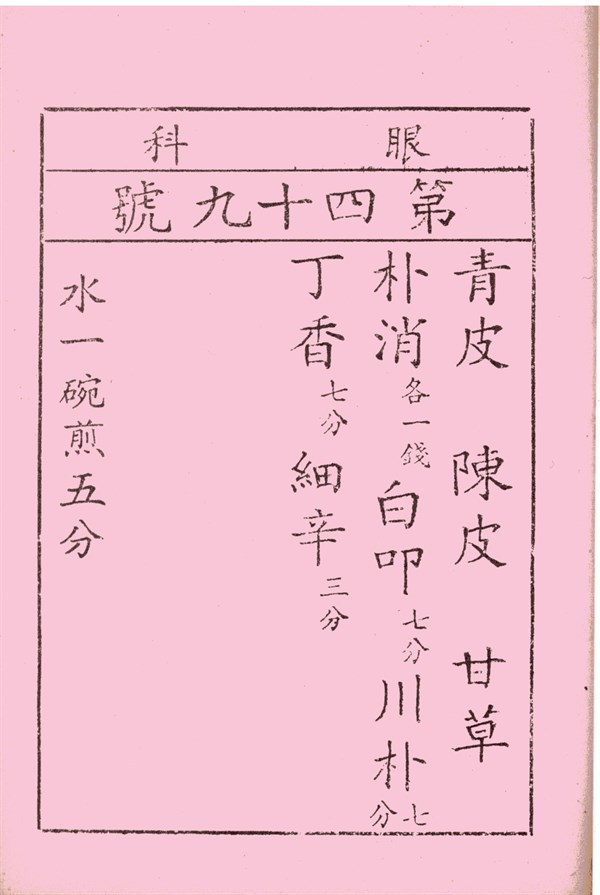 眼科
第四十九號
青皮 陳皮 甘草
朴消各一錢 白叩七分 川朴七分
丁香七分 細辛三分
水一碗煎五分